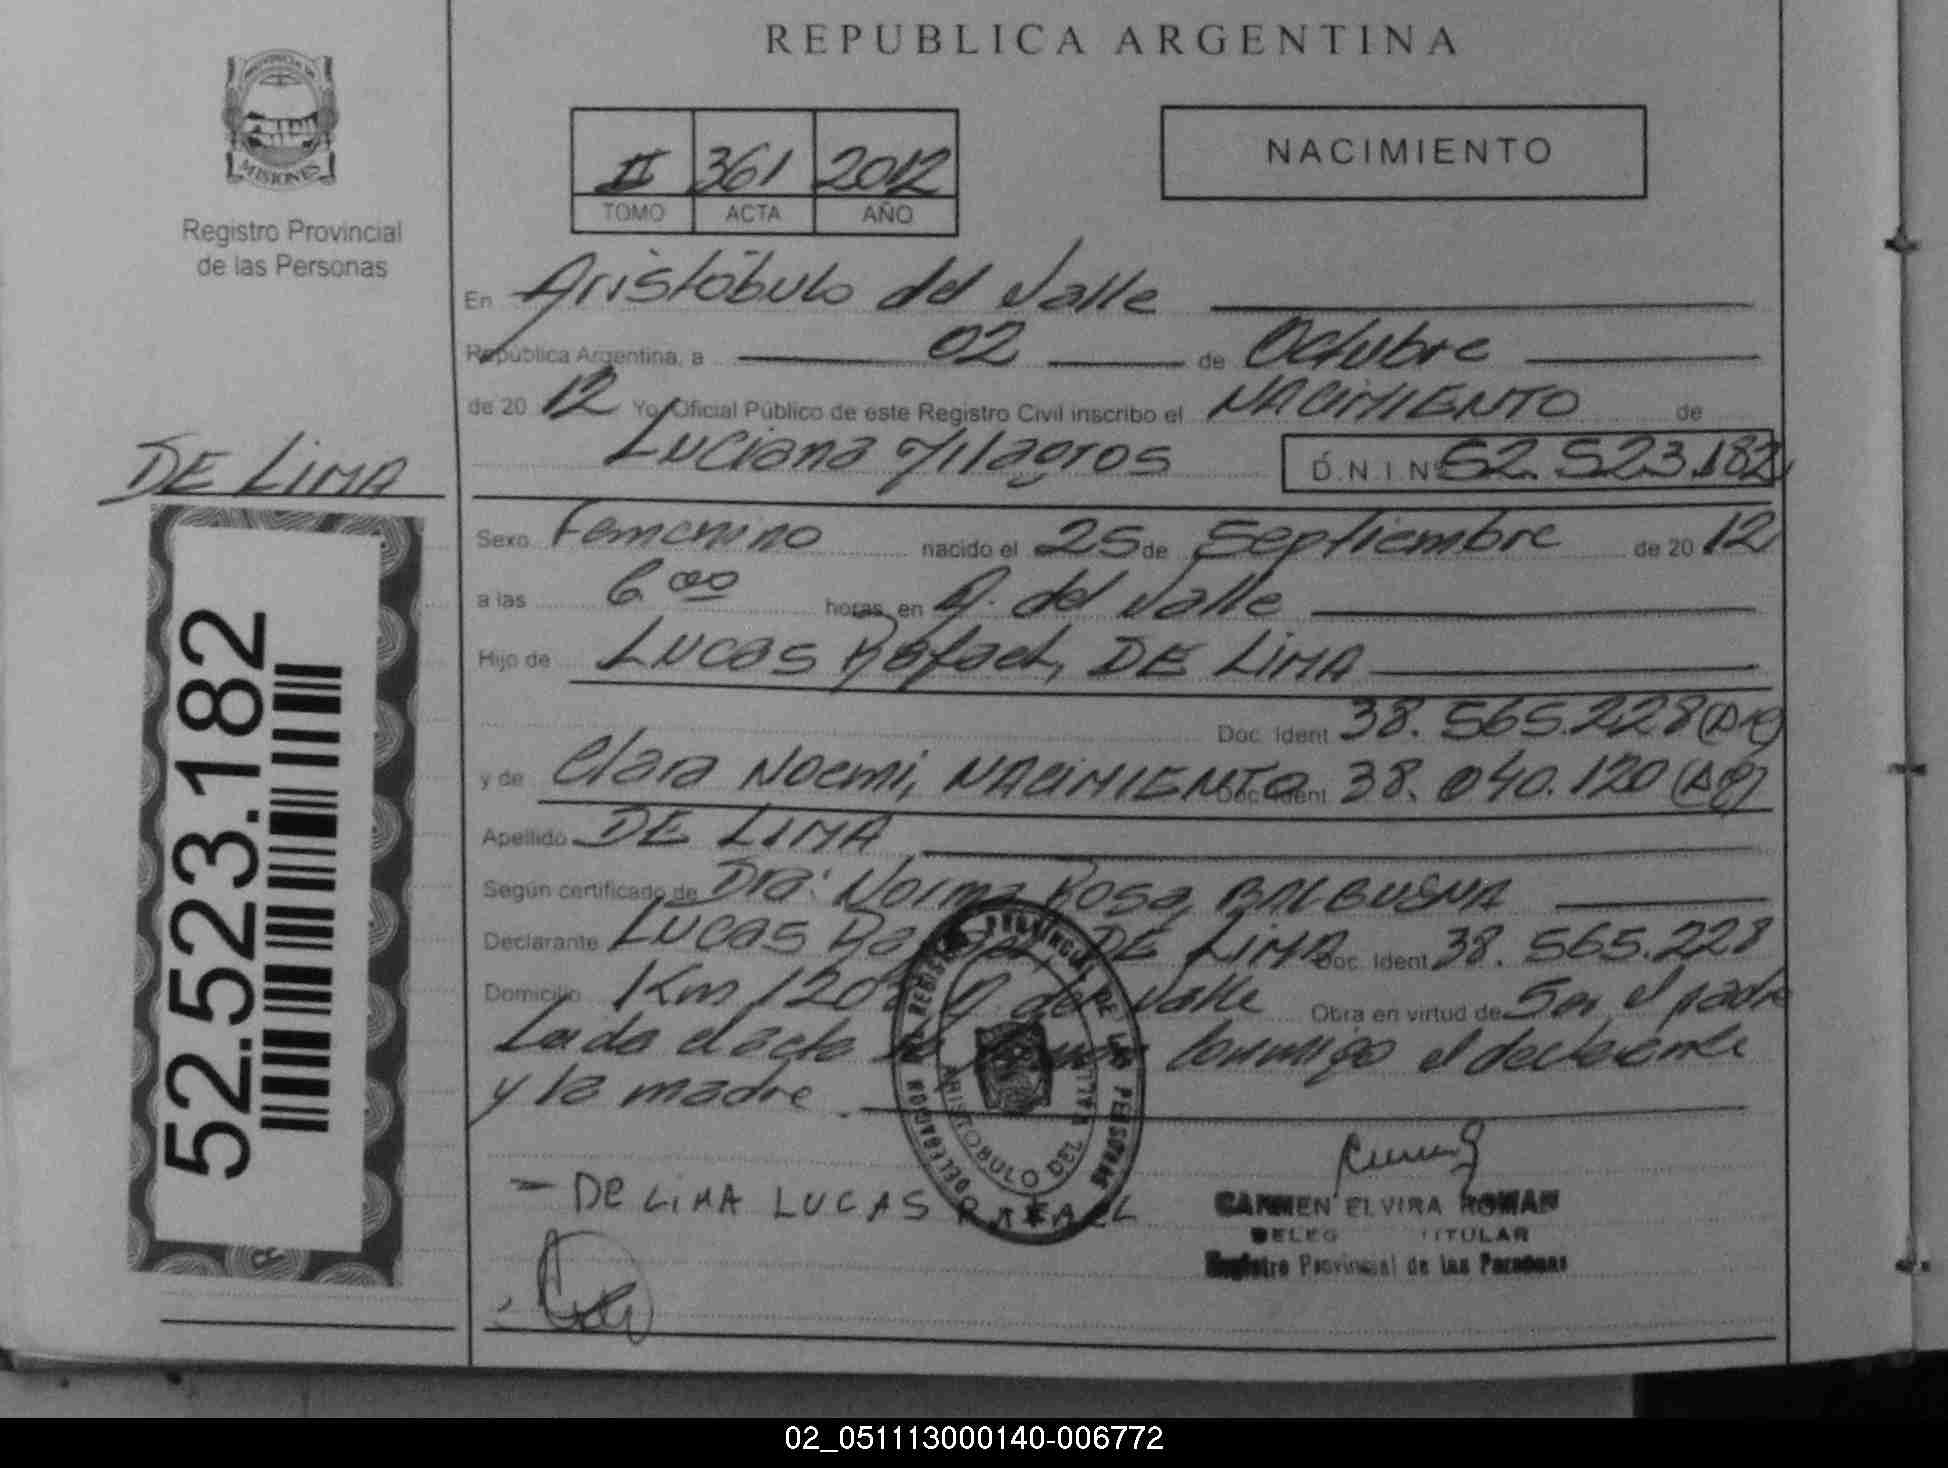 REPUBLICA ARGENTINA
PROVINCIA DE
MISIONES
Registro Provincial
de las Personas
II 361 2012
TOMO ACTA AÑO
NACIMIENTO
En Aristóbulo del Valle
República Argentina, a 02 de Octubre
de 20 12 Yo, Oficial Público de este Registro Civil inscribo el NACIMIENTO de
Luciana Milagros D.N.I N° 52.523.182
DE LIMA
Sexo Femenino nacido el 25 de Septiembre de 20 12
a las 6.00 horas, en A. del Valle
Hijo de Lucas Rafael, DE LIMA
Doc. Ident 38.565.228 (Arg)
y de Clara Noemi, NACIMIENTO Doc. Ident 38.040.120 (Arg)
Apellido DE LIMA
Según certificado de Dra: Norma Rosa, BALBUENA
Declarante Lucas Rafael DE LIMA Doc. Ident 38.565.228
Domicilio Km 1208 A. del Valle Obra en virtud de Ser el padre
Leida el acta la firman conmigo el declarante
y la madre
52.523.182
REGISTRO PROVINCIAL DE LAS PERSONAS
DELEGACION
ARISTOBULO DEL VALLE
DE LIMA LUCAS RAFAEL
CARMEN ELVIRA ROMAN
DELEG TITULAR
Registro Provincial de las Personas
02_051113000140-006772